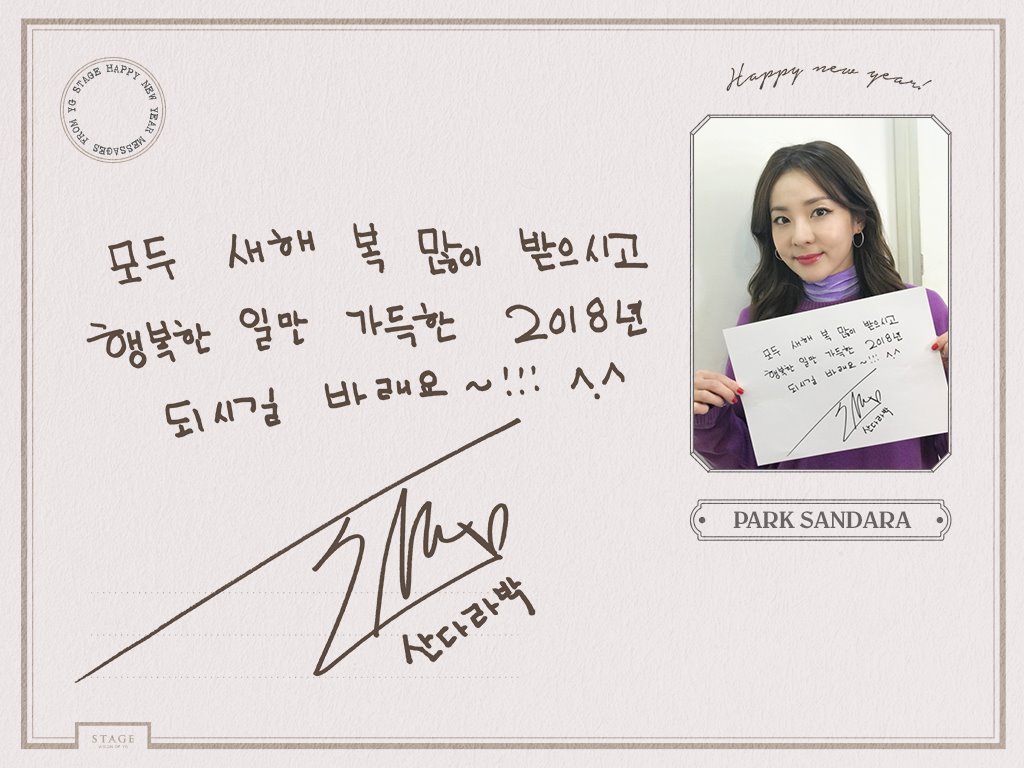 STAGE HAPPY NEW YEAR MESSAGES FROM YG
Happy new year!
모두 새해 복 많이 받으시고
행복한 일만 가득한 2018년
되시길 바래요~!!! ^.^
산다라박
모두 새해 복 많이 받으시고
행복한 일만 가득한 2018년
되시길 바래요~!!! ^^
산다라박
PARK SANDARA
STAGE